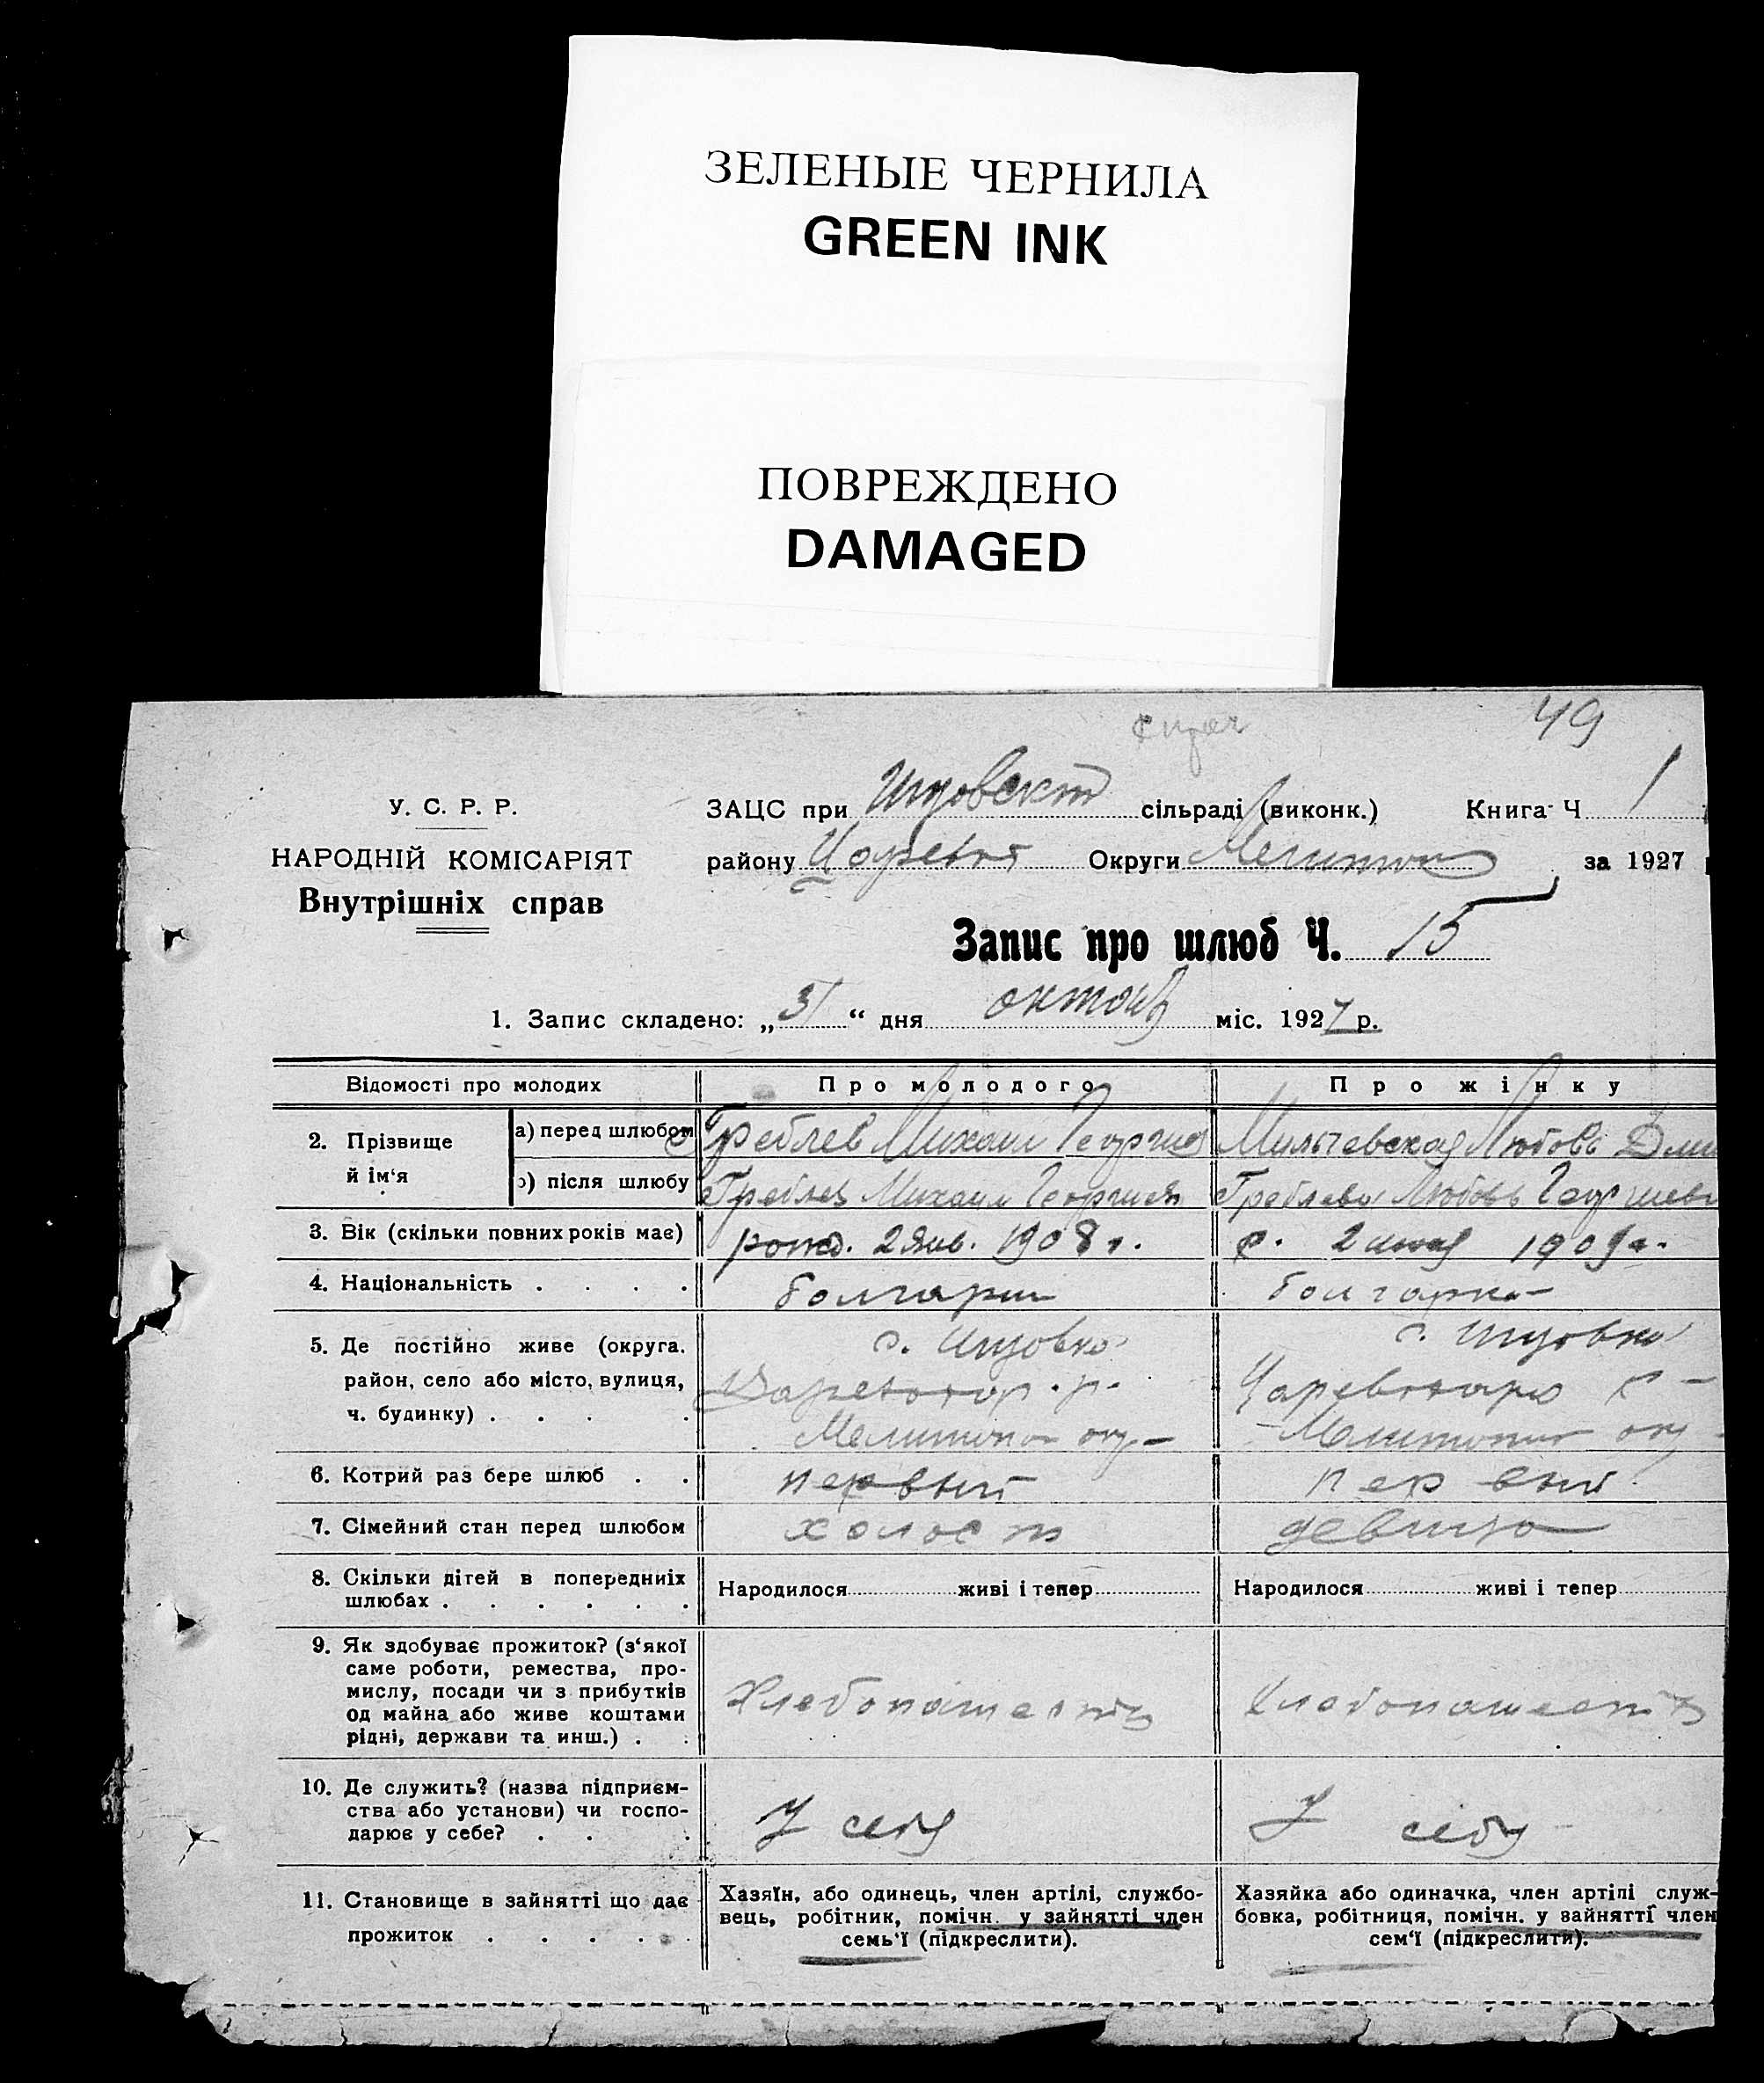 ЗЕЛЕНЫЕ ЧЕРНИЛА
GREEN INK
ПОВРЕЖДЕНО
DAMAGED
49
У. С. Р. Р.
НАРОДНІЙ КОМІСАРІЯТ
Внутрішніх справ
ЗАЦС при сільраді (виконк.) Книга Ч 1
району Округи Мелитоп за 1927
Запис про шлюб Ч. 15
1. Запис складено: „31“ дня октоия міс. 1927 р.
Відомості про молодих Про молодого Про жінку
2. Прізвище й ім‘я
а) перед шлюбом Греблев Михаил Георгиев Мильчевская Любовь Дми
б) після шлюбу Греблев Михаил Георгиев Греблева Любовь Георгиевн
3. Вік (скільки повних років має) рожд. 2 янв. 1908 г. р. 2 1909 г.
4. Національність . . . . болгарин болгарка
5. Де постійно живе (округа. район, село або місто, вулиця, ч. будинку) . . . .
с.
р.
Мелитопол окр
с.
р
Мелитопол окр
6. Котрий раз бере шлюб . . первый первый
7. Сімейний стан перед шлюбом холост девица
8. Скільки дітей в попередниіх шлюбах . . . . . .
Народилося живі і тепер Народилося живі і тепер
9. Як здобуває прожиток? (з‘якої саме роботи, ремества, промислу, посади чи з прибутків од майна або живе коштами рідні, держави та инш.) . .
Хлебопашеств Хлебопашеств
10. Де служить? (назва підприємства або установи) чи господарює у себе? . . .
У себя У себя
11. Становище в зайнятті що дає прожиток . . . . .
Хазяїн, або одинець, член артілі, службовець, робітник, помічн. у зайнятті член семь‘ї (підкреслити).
Хазяйка або одиначка, член артілі службовка, робітниця, помічн. у зайнятті член сем‘ї (підкреслити).